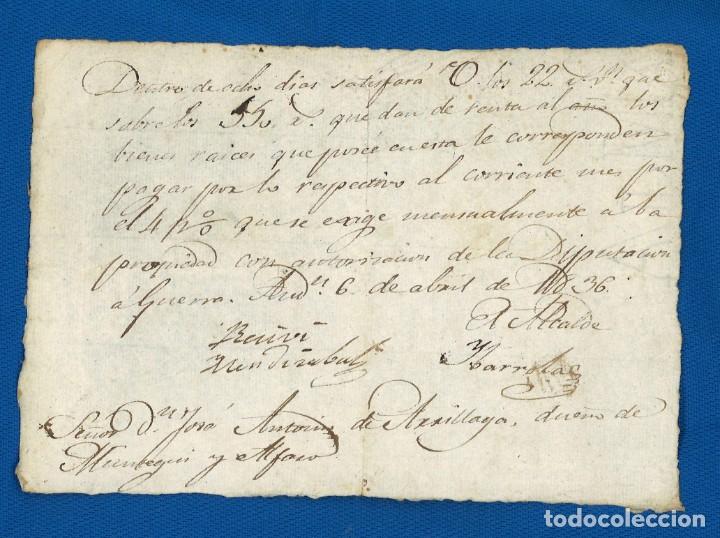 Dentro de ocho dias satisfará V. los 22 r. vn que
sobre los 550 r. que dan de renta al año los
bienes raices que posée en esta le corresponden
pagar por lo respectivo al corriente mes por
el 4 p% que se exige mensualmente á la
propiedad con autorizacion de la Diputacion
á Guerra. And.n 6 de abril de 1836.
El Alcalde
Recivi
Mendizabal Ybarrola
Señor D.n José Antonio de Arrillaga, dueño de
y Alfaro
todocoleccion
todocoleccion.net